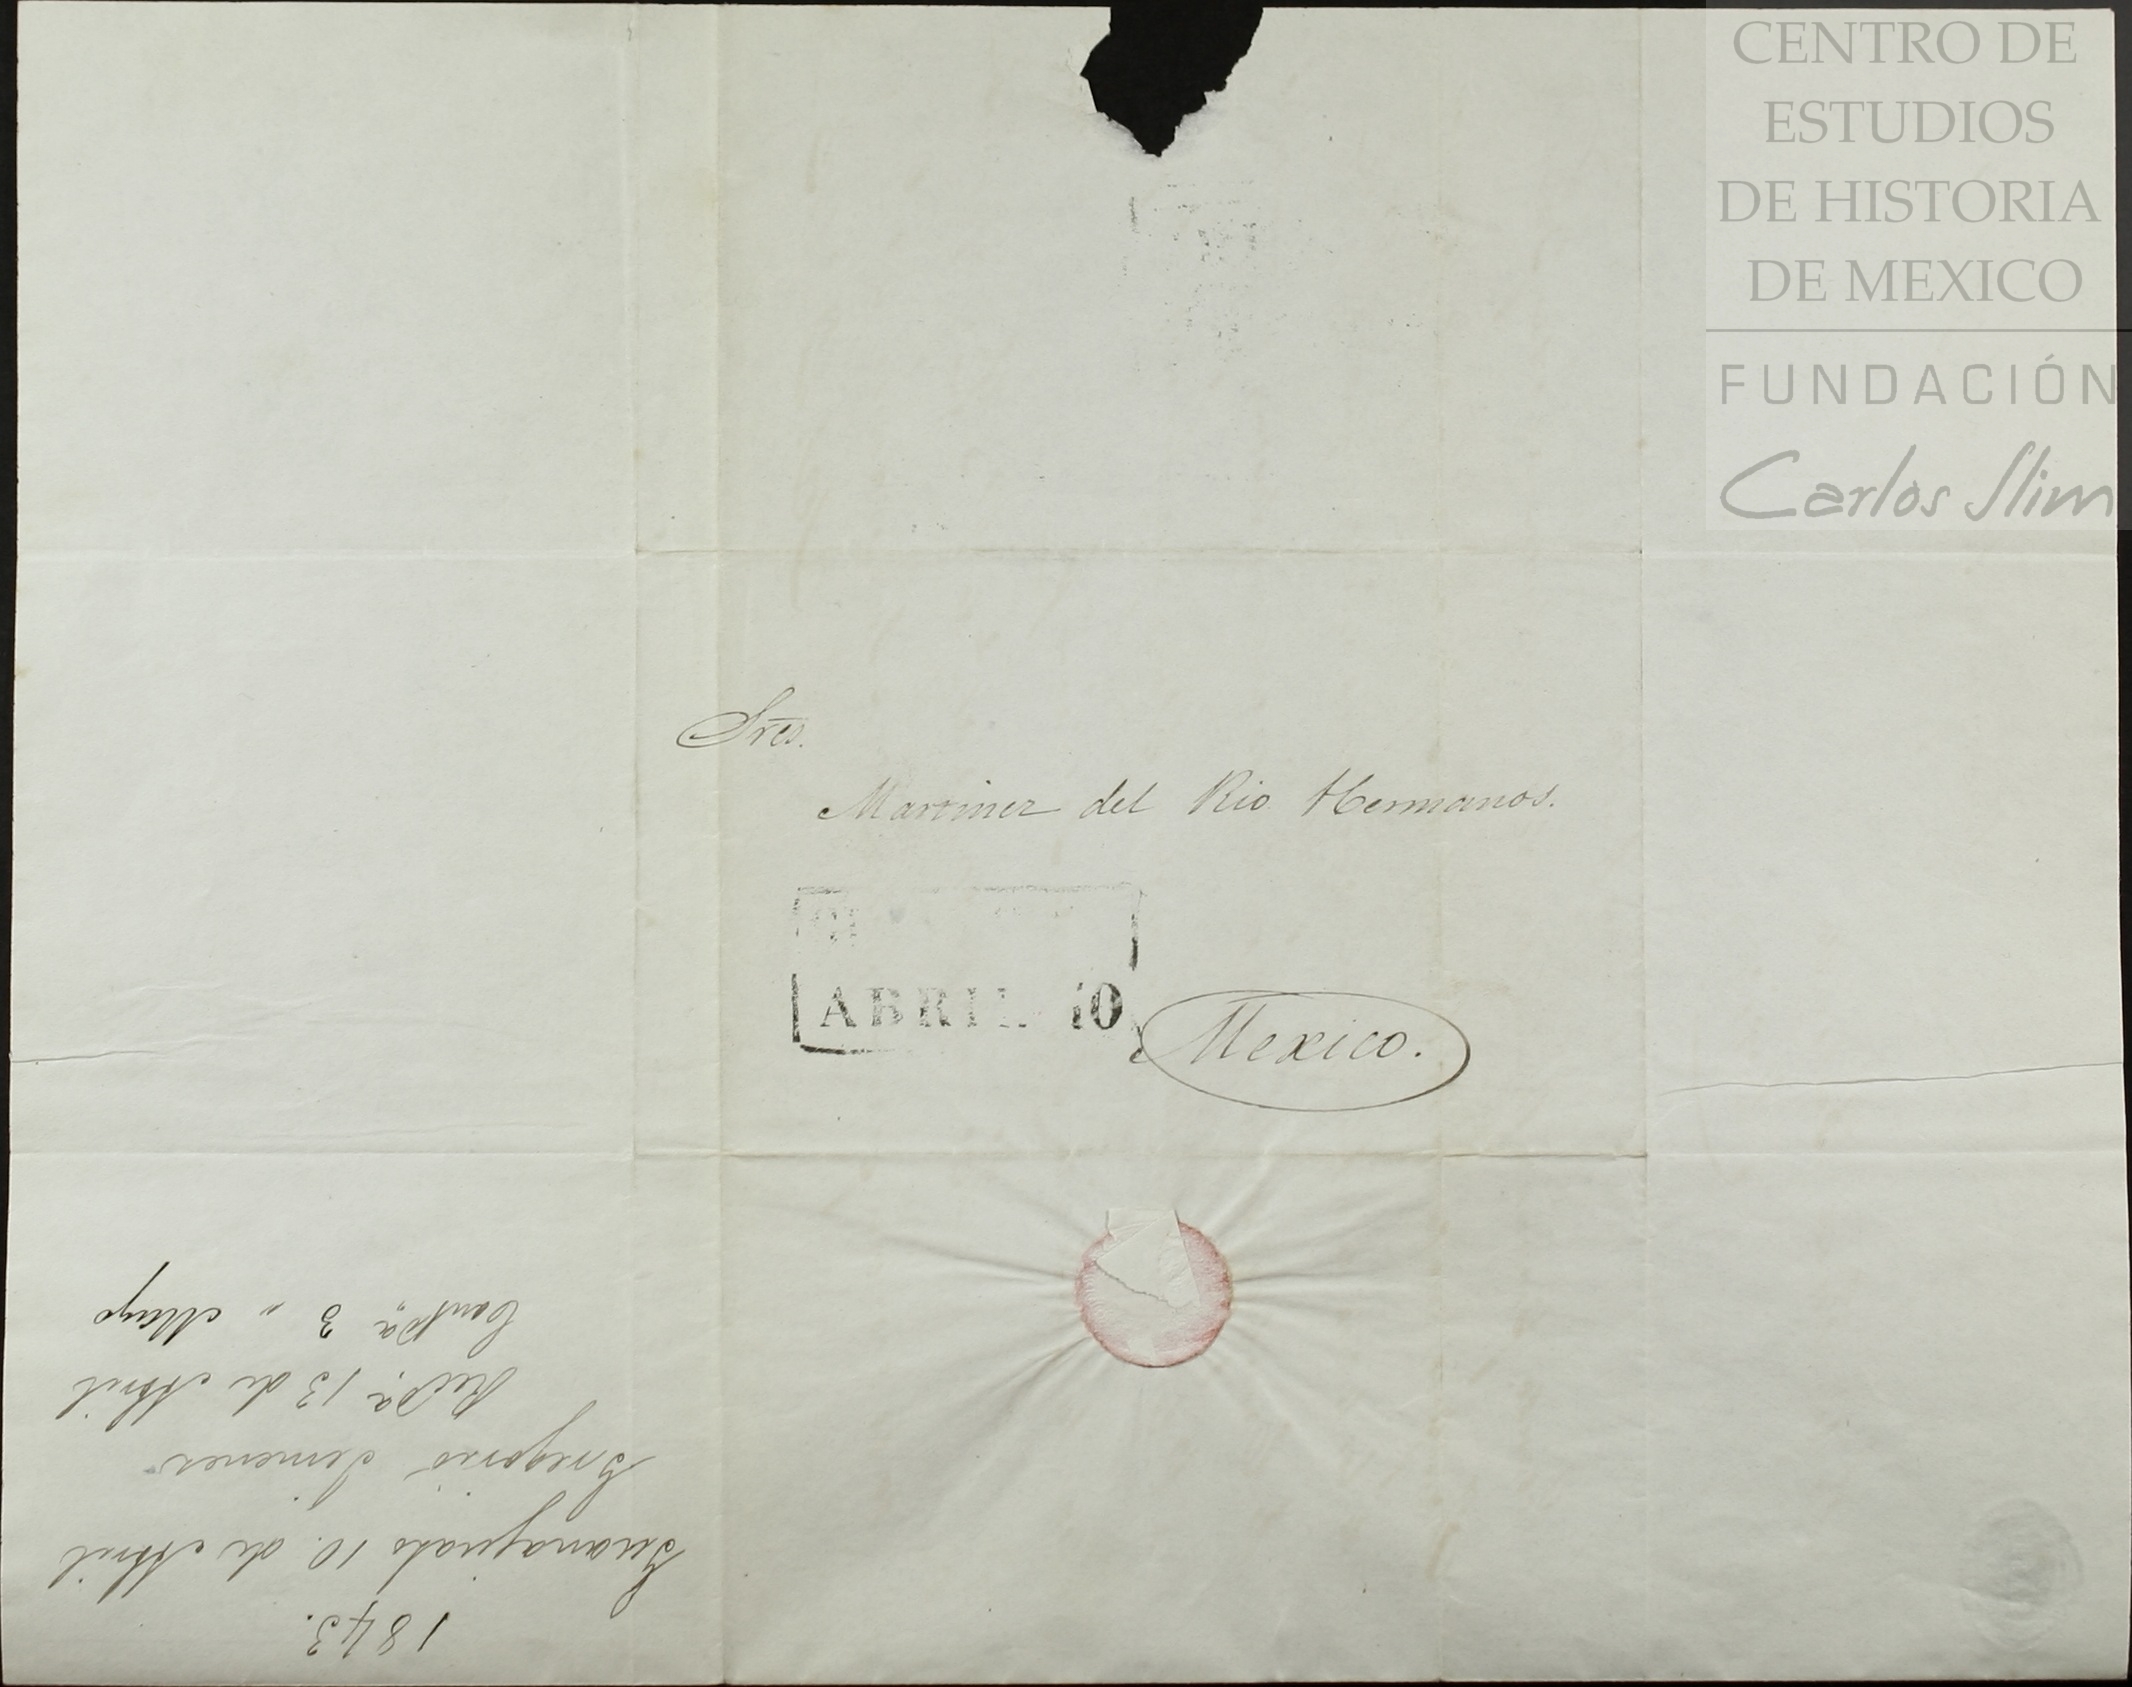 CENTRO DE
ESTUDIOS
DE HISTORIA
DE MEXICO
FUNDACIÓN
Carlos Slim
Sres.
Martinez del Rio Hermanos.
ABRIL 10
Mexico.
1843.
Guanajuato 10. de Abril
Gregorio Jimenez
Recda 13 de Abril
Contda 3 " Mayo